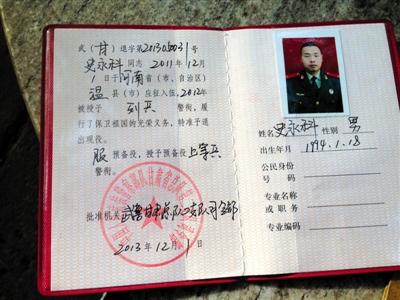 武（甘）退字第20130003号
史永科同志 2011年12月
1日于河南省（市、自治区）
温县（市）应征入伍，2012年
被授予 列兵 警衔，履
行了保卫祖国的光荣义务，特准予退
出现役。
服预备役，授予预备役上等兵
警衔。
批准机关
2013年12月1日
姓名 史永科 性别 男
出生年月 1994.1.18
公民身份
号码
专业名称
或职务
专业编码